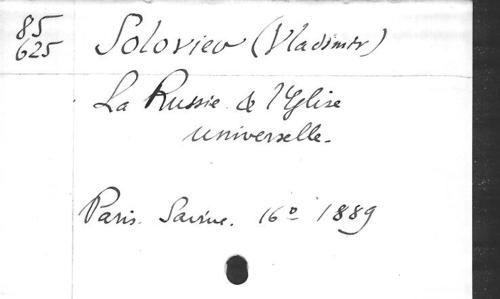 85
625
Soloview (Vladimir)
La Russie & l'Eglise
universelle.
Paris. Savine. 16º 1889